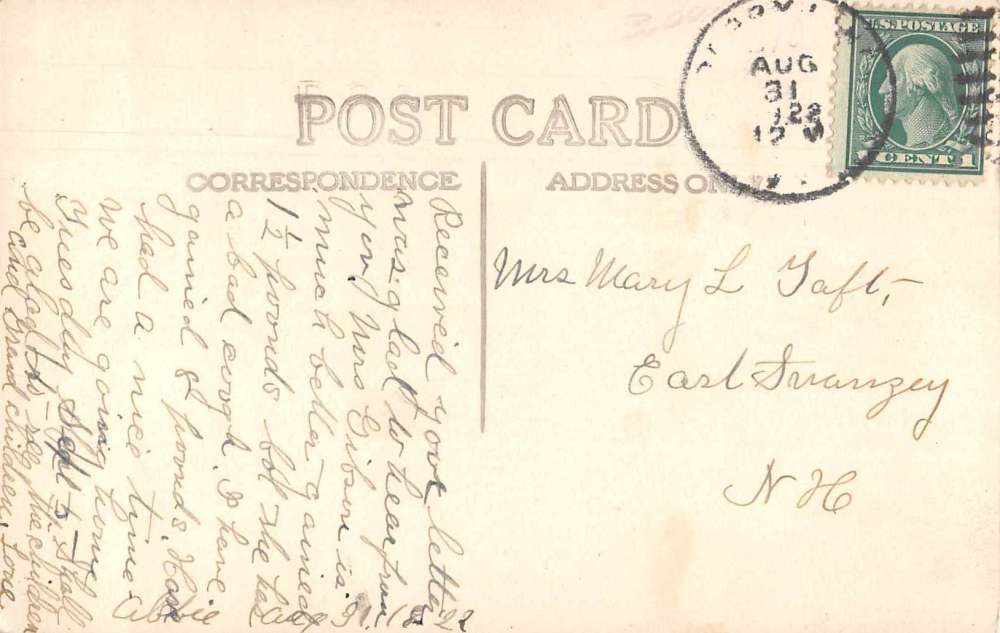 POST CARD
CORRESPONDENCE
ADDRESS ONLY
AUG
31
1922
12 M
U.S. POSTAGE
1 CENT 1
Mrs Mary L Taft,-
East Swanzey
N H
Received your letter
was glad to hear from
you, Mrs Gibson is
much better - gained
1 1/2 pounds but she has
a bad cough. I have
gained 8 pounds. Have
had a nice time
We are going home
Tuesday Sept 5- Shall
be glad to see the children
and Grand children, Love
Abbie